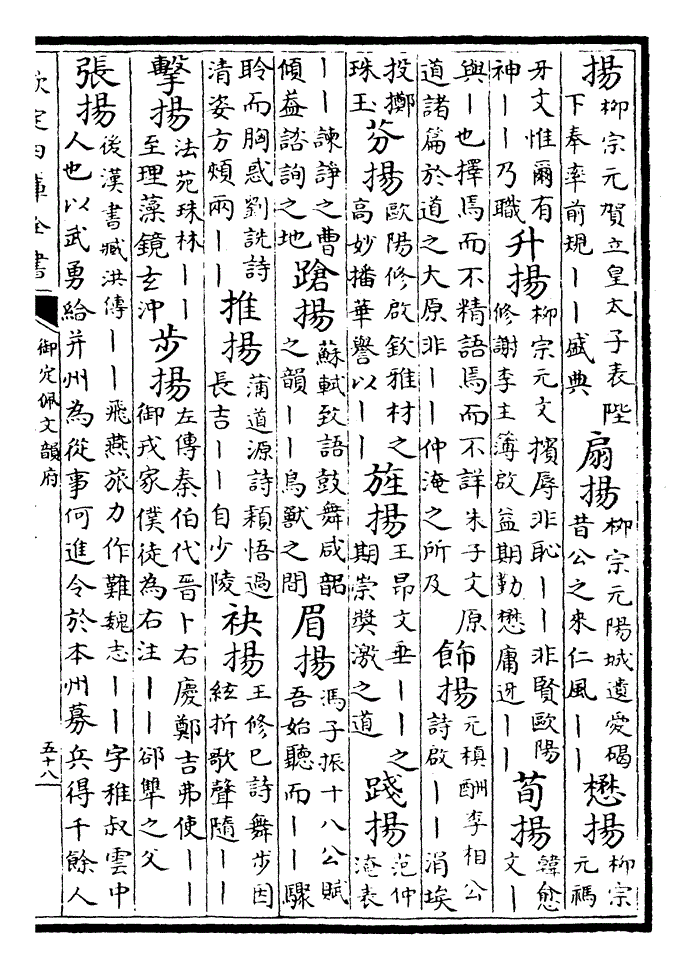 揚柳宗元賀立皇太子表陛下奉率前規丨丨盛典扇揚柳宗元陽城遺愛碣昔公之來仁風丨丨懋揚柳宗元禡
牙文惟爾有神丨丨乃職升揚柳宗元文擯辱非恥丨丨非賢歐陽修謝李主簿啟益期勤懋庸迓丨丨荀揚韓愈文丨
與丨也擇焉而不精語焉而不詳朱子文原道諸篇於道之大原非丨丨仲淹之所及飾揚元稹酬李相公詩啟丨丨涓埃
投擲珠玉芬揚歐陽修啟欽雅材之高妙播華譽以丨丨旌揚王昂文垂丨丨之期崇獎激之道踐揚范仲淹表
丨丨諫諍之曹傾益諮詢之地蹌揚蘇軾致語鼓舞咸韶之韻丨丨鳥獸之間眉揚馮子振十八公賦吾始聽而丨丨驟
聆而胸惑劉詵詩清姿方頰兩丨丨推揚蒲道源詩穎悟過長吉丨丨自少陵袂揚王修巳詩舞步因絃折歌聲隨丨丨
擊揚法苑珠林丨丨至理藻鏡玄沖步揚左傳秦伯代晉卜右慶鄭吉弗使丨丨御戎家僕徒為右注丨丨郤犨之父
張揚後漢書臧洪傳丨丨飛燕旅力作難魏志丨丨字稚叔雲中人也以武勇給并州為從事何進令於本州募兵得千餘人
欽定四庫全書
御定佩文韻府
五十八